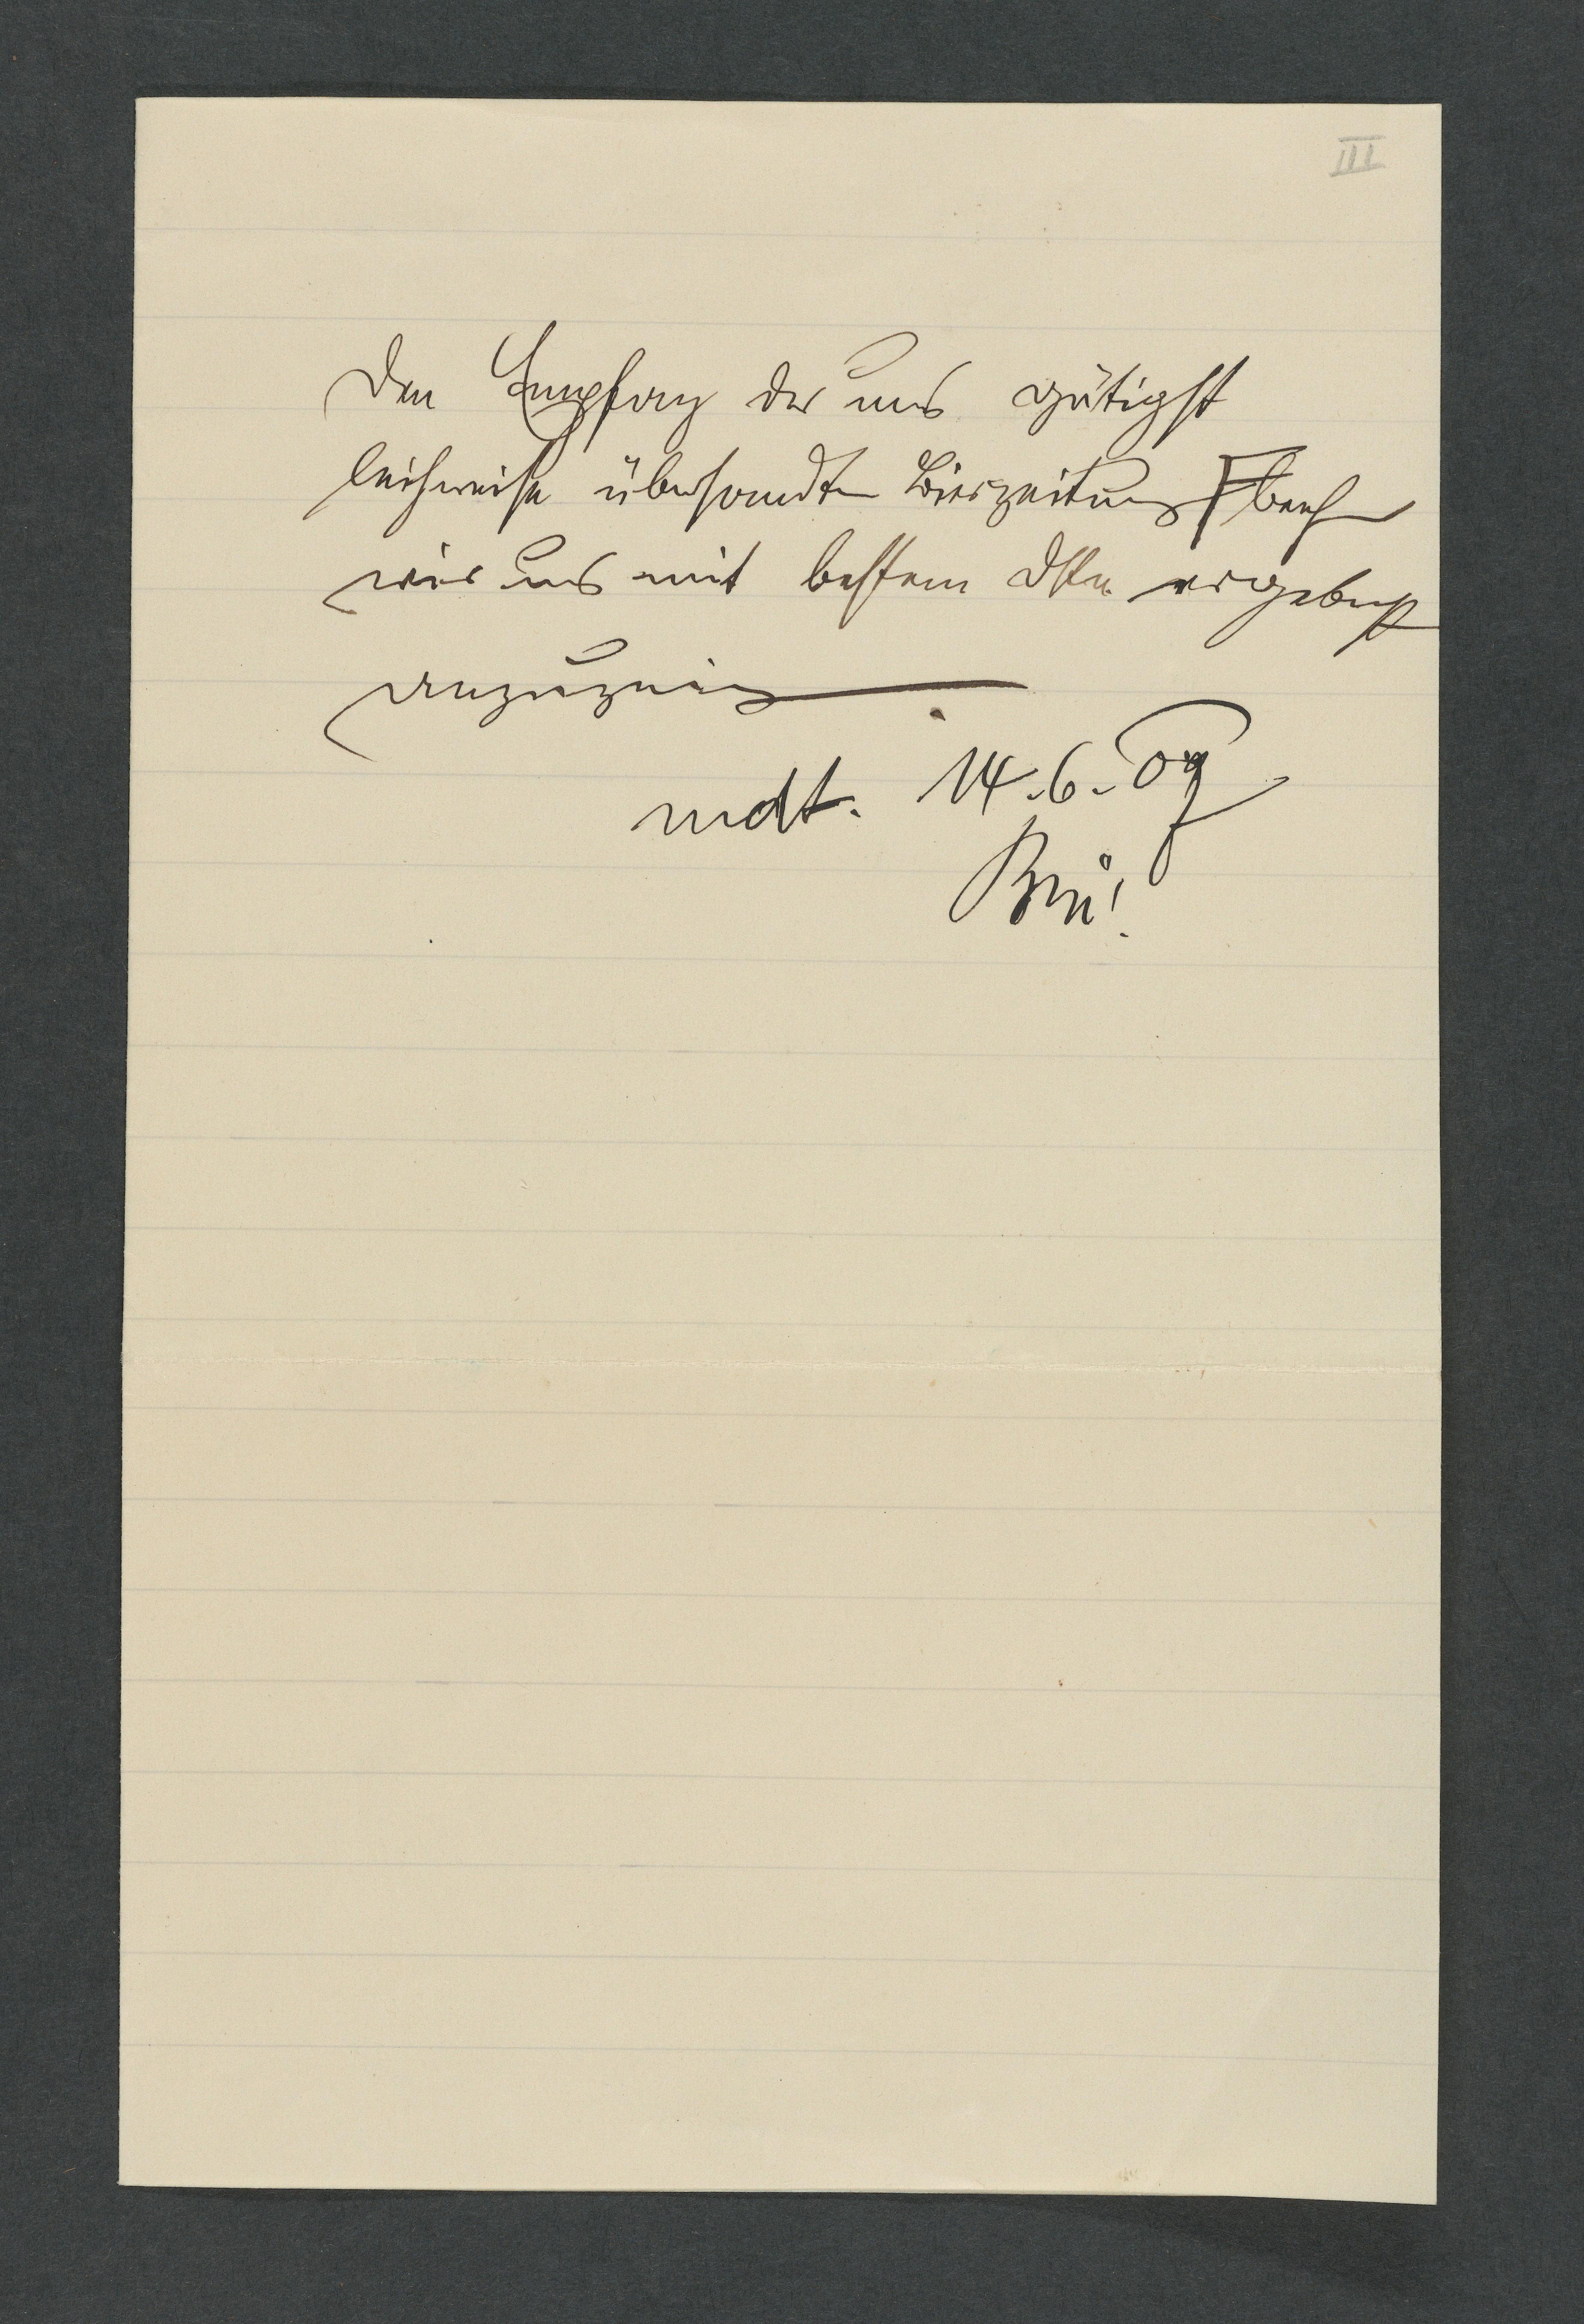 III
Den Empfang der uns gütigst
leihweise übersandten Bierzeitung beehren
wir uns mit bestem Dke. ergebenst
anzuzeigen
mdt. 14.6.09
Brü!